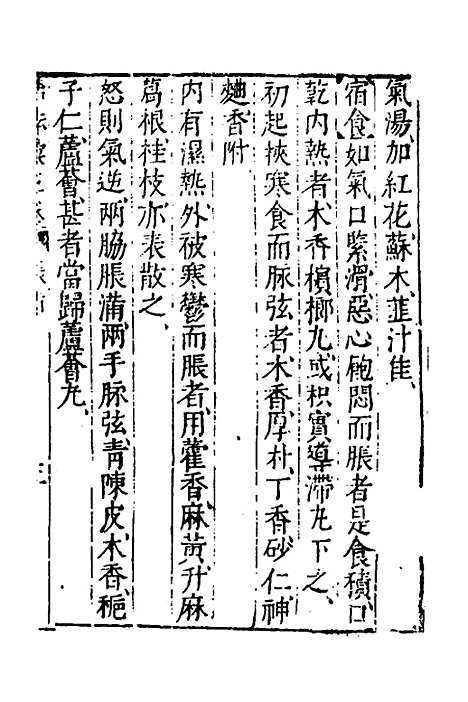 氣湯加紅花、蘇木、韮汁佳、
宿食、如氣口緊滑、惡心飽悶而脹者是食積、口
乾內熱者、木香檳榔丸、或枳實導滯丸下之、
初起挾寒食而脉弦者、木香、厚朴、丁香、砂仁、神
麯、香附
內有濕熱、外被寒鬱而脹者、用藿香、麻黃、升麻
葛根、桂枝、亦表散之、
怒則氣逆、兩脇脹滿、兩手脉弦、青陳皮、木香、梔
子仁、蘆薈、甚者當歸蘆薈丸、